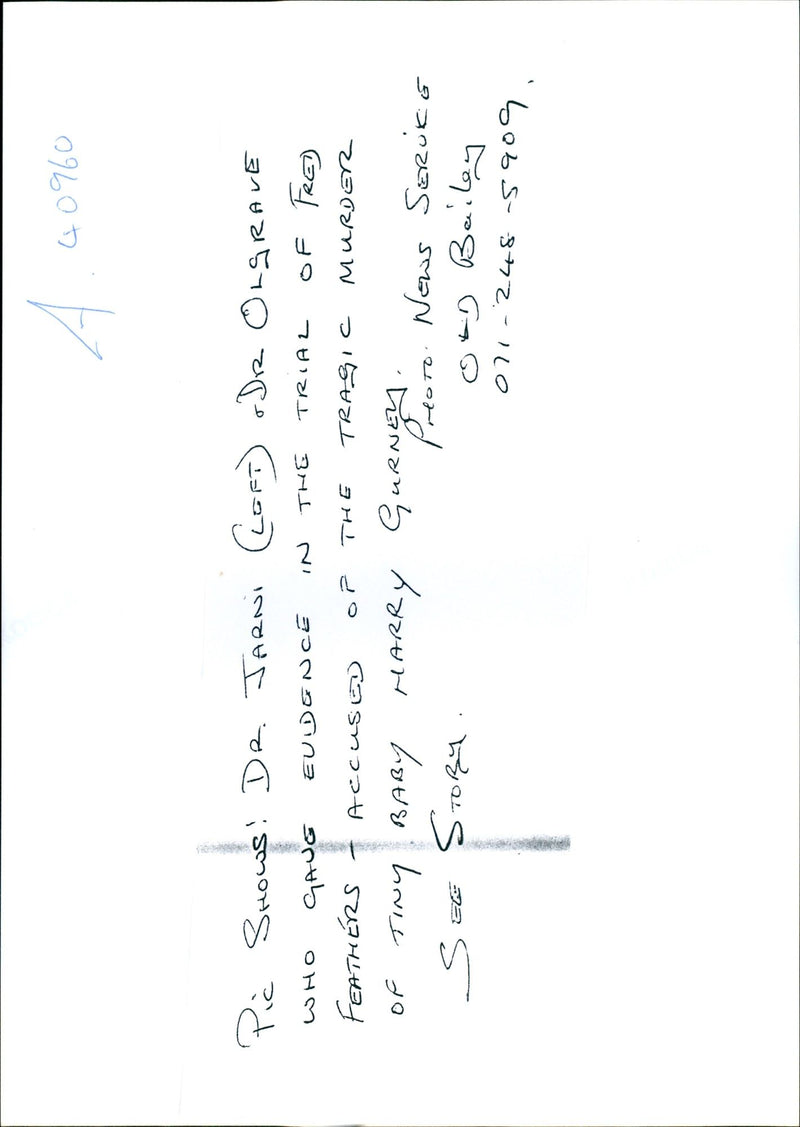 A 40960
Pic Shows: DR. JARNI (LEFT) & DR OLGRAVE
WHO GAVE EVIDENCE IN THE TRIAL OF FRED
FEATHERS - ACCUSED OF THE TRAGIC MURDER
OF TINY BABY HARRY GURNEY.
SEE STORY.
PHOTO NEWS SERVICE
OLD Bailey
071-248-5909.